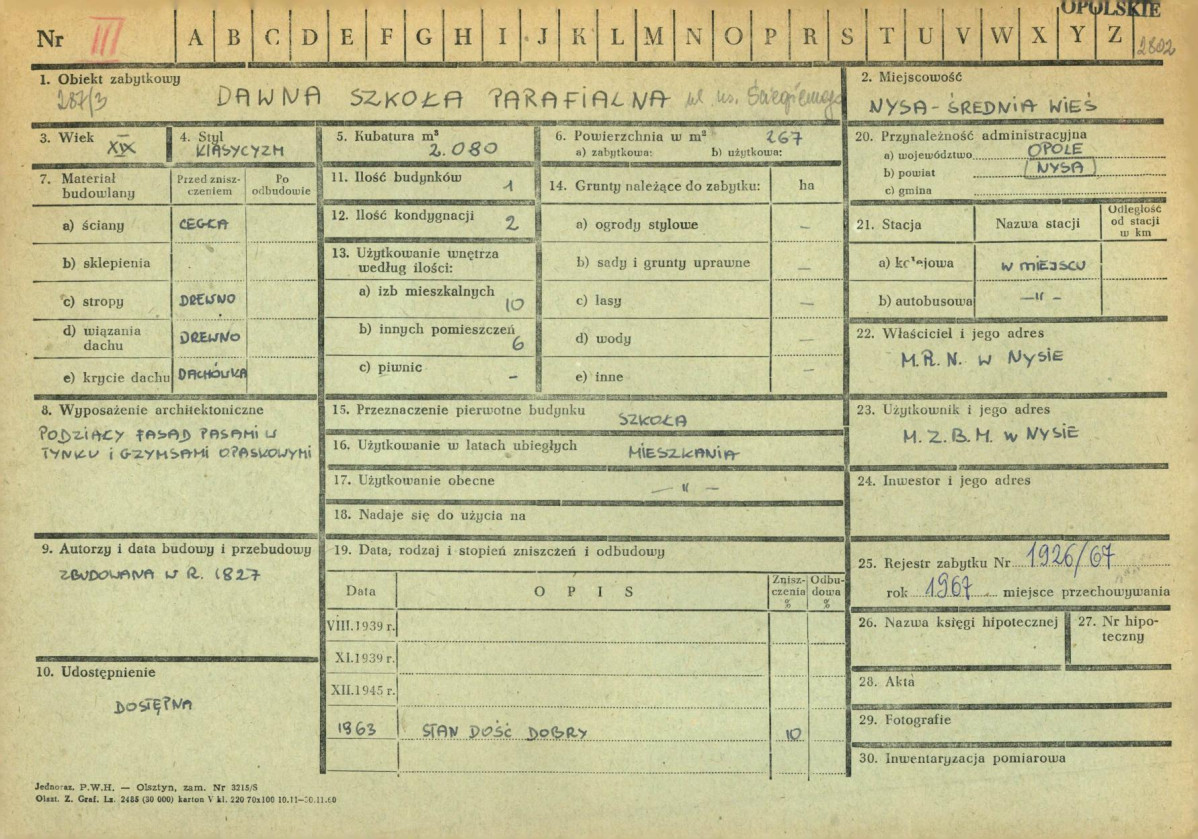 OPOLSKIE
Nr III A B C D E F G H I J K L M N O P R S T U V W X Y Z 2802
1. Obiekt zabytkowy
287/3 DAWNA SZKOŁA PARAFIALNA ul. ks. Ściegiennego
2. Miejscowość
NYSA - ŚREDNIA WIEŚ
3. Wiek XIX
4. Styl
KLASYCYZM
5. Kubatura m³
2.080
6. Powierzchnia w m² 267
a) zabytkowa: b) użytkowa:
20. Przynależność administracyjna
a) województwo OPOLE
b) powiat NYSA
c) gmina
7. Materiał budowlany
Przed znisz-
czeniem
Po
odbudowie
a) ściany CEGŁA
b) sklepienia
c) stropy DREWNO
d) wiązania
dachu DREWNO
e) krycie dachu DACHÓWKA
11. Ilość budynków 1
12. Ilość kondygnacji 2
13. Użytkowanie wnętrza
według ilości:
a) izb mieszkalnych
10
b) innych pomieszczeń
6
c) piwnic -
14. Grunty należące do zabytku: ha
a) ogrody stylowe -
b) sady i grunty uprawne -
c) lasy -
d) wody -
e) inne -
21. Stacja Nazwa stacji
Odległość
od stacji
w km
a) kolejowa W MIEJSCU
b) autobusowa -"-
22. Właściciel i jego adres
M.R.N. W NYSIE
8. Wyposażenie architektoniczne
PODZIAŁY FASAD PASAMI W
TYNKU I GZYMSAMI OPASKOWYMI
15. Przeznaczenie pierwotne budynku
SZKOŁA
16. Użytkowanie w latach ubiegłych
MIESZKANIA
17. Użytkowanie obecne -"-
18. Nadaje się do użycia na
23. Użytkownik i jego adres
M.Z.B.M. W NYSIE
24. Inwestor i jego adres
9. Autorzy i data budowy i przebudowy
ZBUDOWANA W R. 1827
19. Data, rodzaj i stopień zniszczeń i odbudowy
Data O P I S
Znisz-
czenia
%
Odbu-
dowa
%
VIII.1939 r.
XI.1939 r.
XII.1945 r.
1963 STAN DOŚĆ DOBRY 10
25. Rejestr zabytku Nr 1926/67
rok 1967 miejsce przechowywania
26. Nazwa księgi hipotecznej
27. Nr hipo-
teczny
10. Udostępnienie
DOSTĘPNA
28. Akta
29. Fotografie
30. Inwentaryzacja pomiarowa
Jednoraz. P.W.H. — Olsztyn, zam. Nr 3215/S
Olszt. Z. Graf. Lz. 2485 (30 000) karton V kl. 220 70x100 10.11—30.11.60